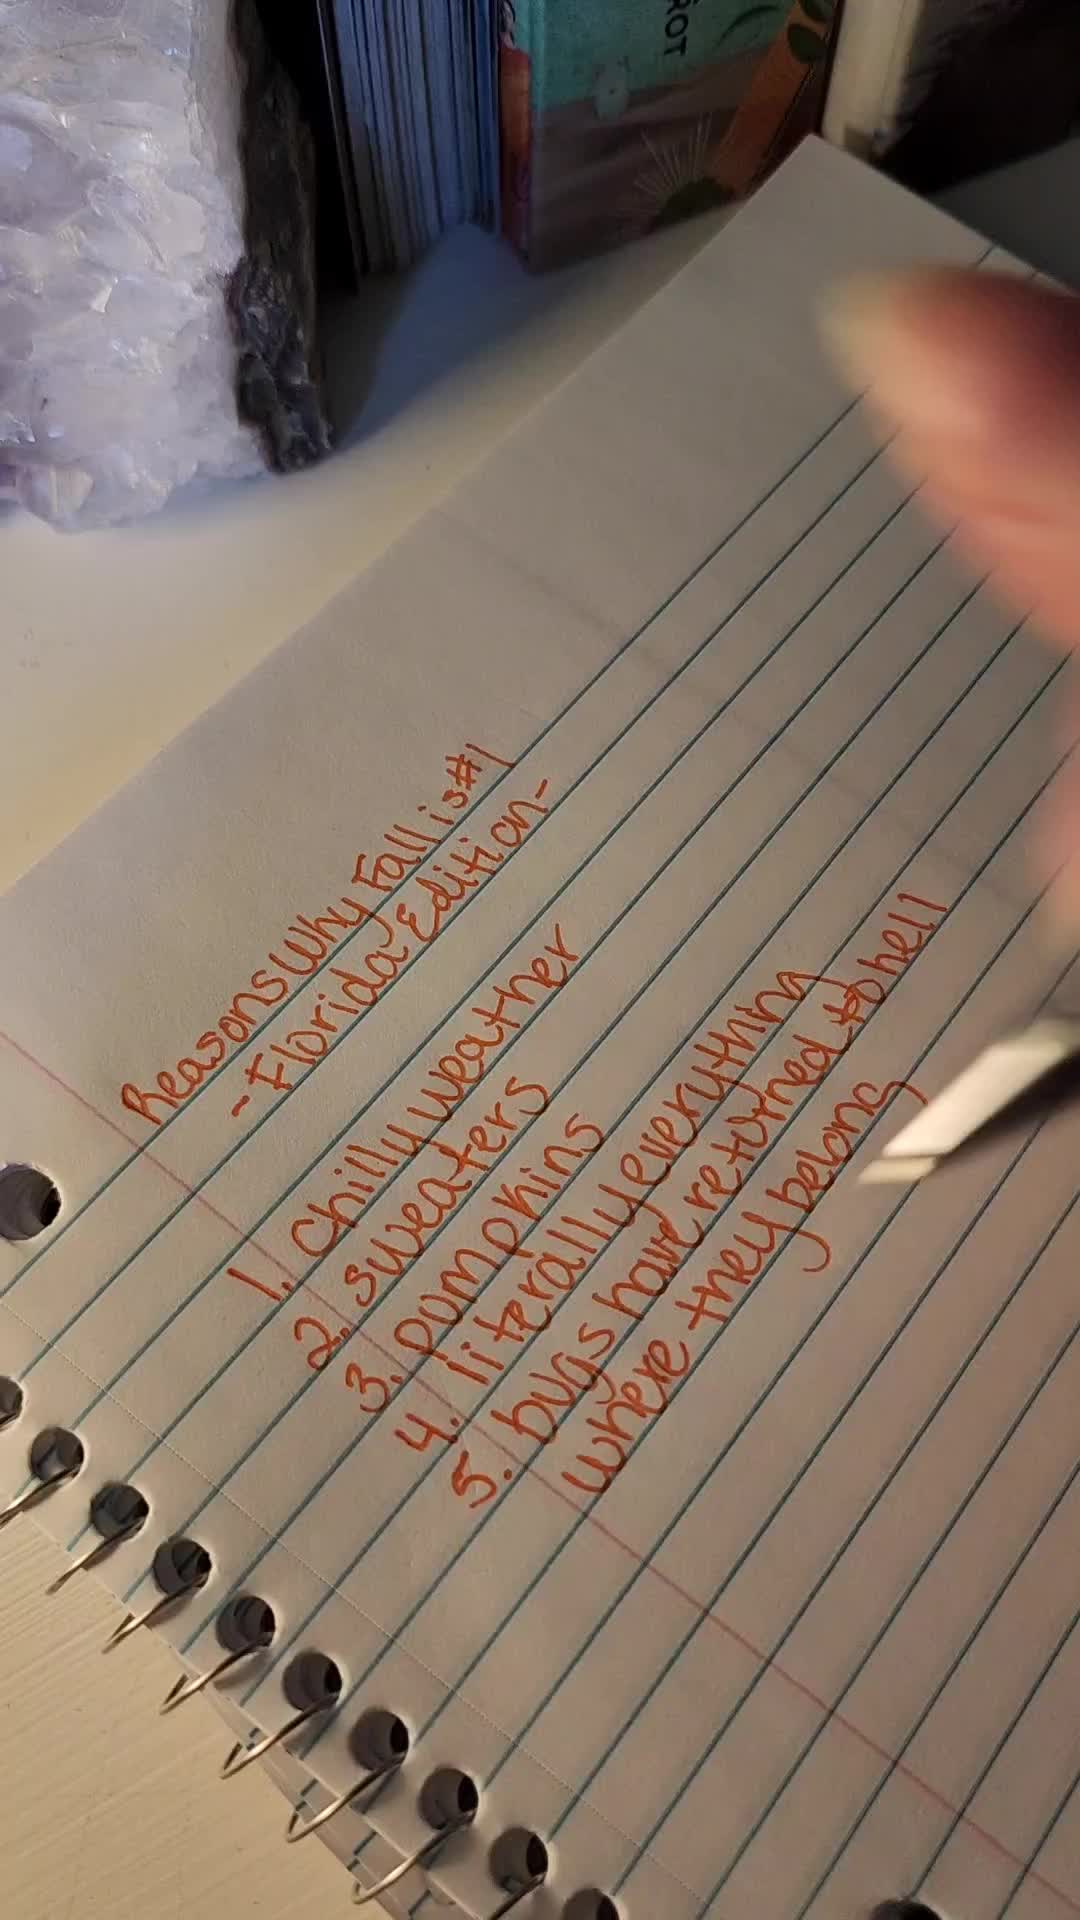 ROT
Reasons Why Fall is #1
- Florida Edition -
1. Chilly weather
2. sweaters
3. pumpkins
4. literally everything
5. bugs have returned to hell
where they belong